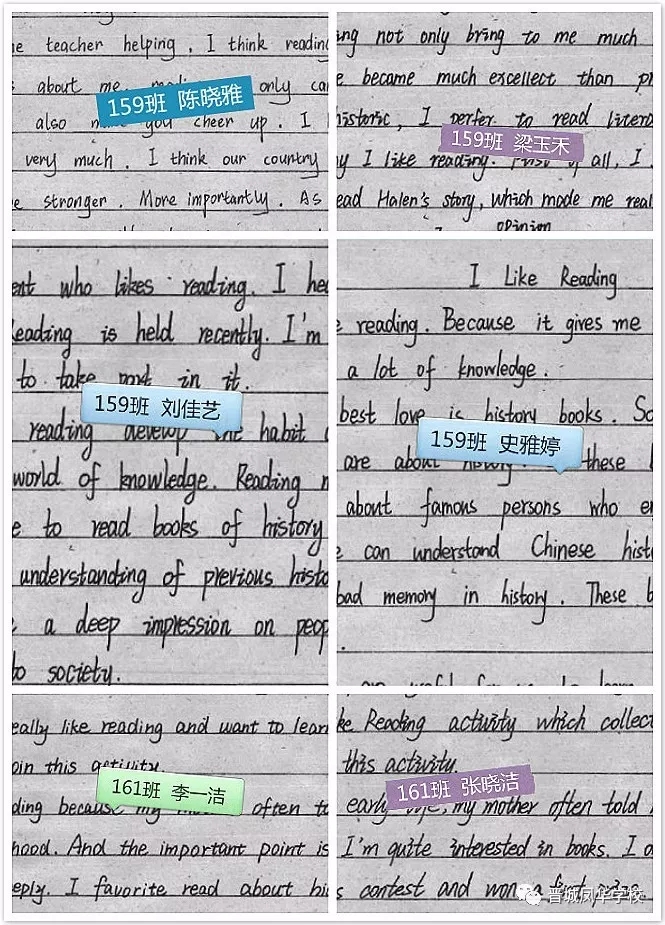 teacher helping, I think reading
about me, only can
159班 陈晓雅
also you cheer up. I
very much. I think our country
stronger. More importantly. As
ng not only bring to me much
became much excellect than
historic, I perfer to read litera
159班 梁玉禾
I like reading. First of all, I
ead Halen's story, which made me real
opinion
ent who likes reading. I
eading is held recently. I'm
to take part in it.
159班 刘佳艺
reading develop the habit
world of knowledge. Reading
to read books of history
understanding of previous histo
a deep impression on peop
to society.
I Like Reading
reading. Because it gives me
a lot of knowledge.
best love is history books. So
159班 史雅婷
are about history. these
about famous persons who
can understand Chinese hist
bad memory in history. These
eally like reading and want to learn
oin this activity.
161班 李一洁
ding because my often to
hood. And the important point is
eply. I favorite read about his
ke Reading activity which collect
this activity.
161班 张晓洁
early life, my mother often told
I'm quite interested in books. I
s contest and won a first prize.
晋城凤华学校